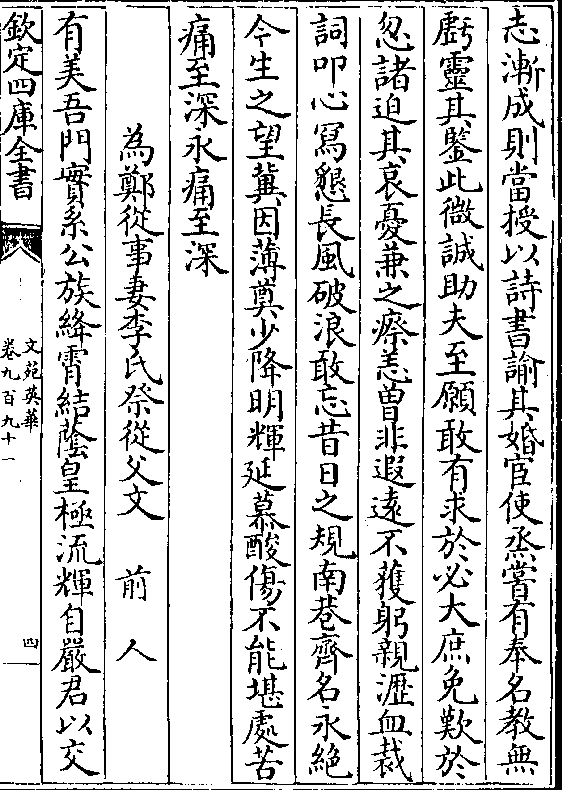 志漸成則當授以詩書諭其婚宦使烝嘗有奉名教無
虧靈其鑒此微誠助夫至願敢有求於必大庶免歎於
忽諸迫其哀憂兼之瘵恙曾非遐遠不獲躬親瀝血裁
詞叩心冩懇長風破浪敢忘昔日之規南巷齊名永絶
今生之望冀因薄奠少降明輝延慕酸傷不能堪處苦
痛至深永痛至深
為鄭從事妻李氏祭從父文　前人
有美吾門實系公族絳霄結蔭皇極流輝自嚴君以交
欽定四庫全書
文苑英華
卷九百九十一
四